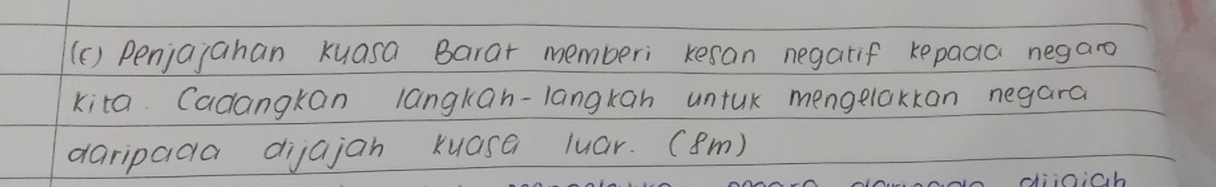 (c) Penjajahan kuasa Barat memberi kesan negatif kepada negara
kita. Cadangkan langkah-langkah untuk mengelakkan negara
daripada dijajah kuasa luar. (8m)
dijajah